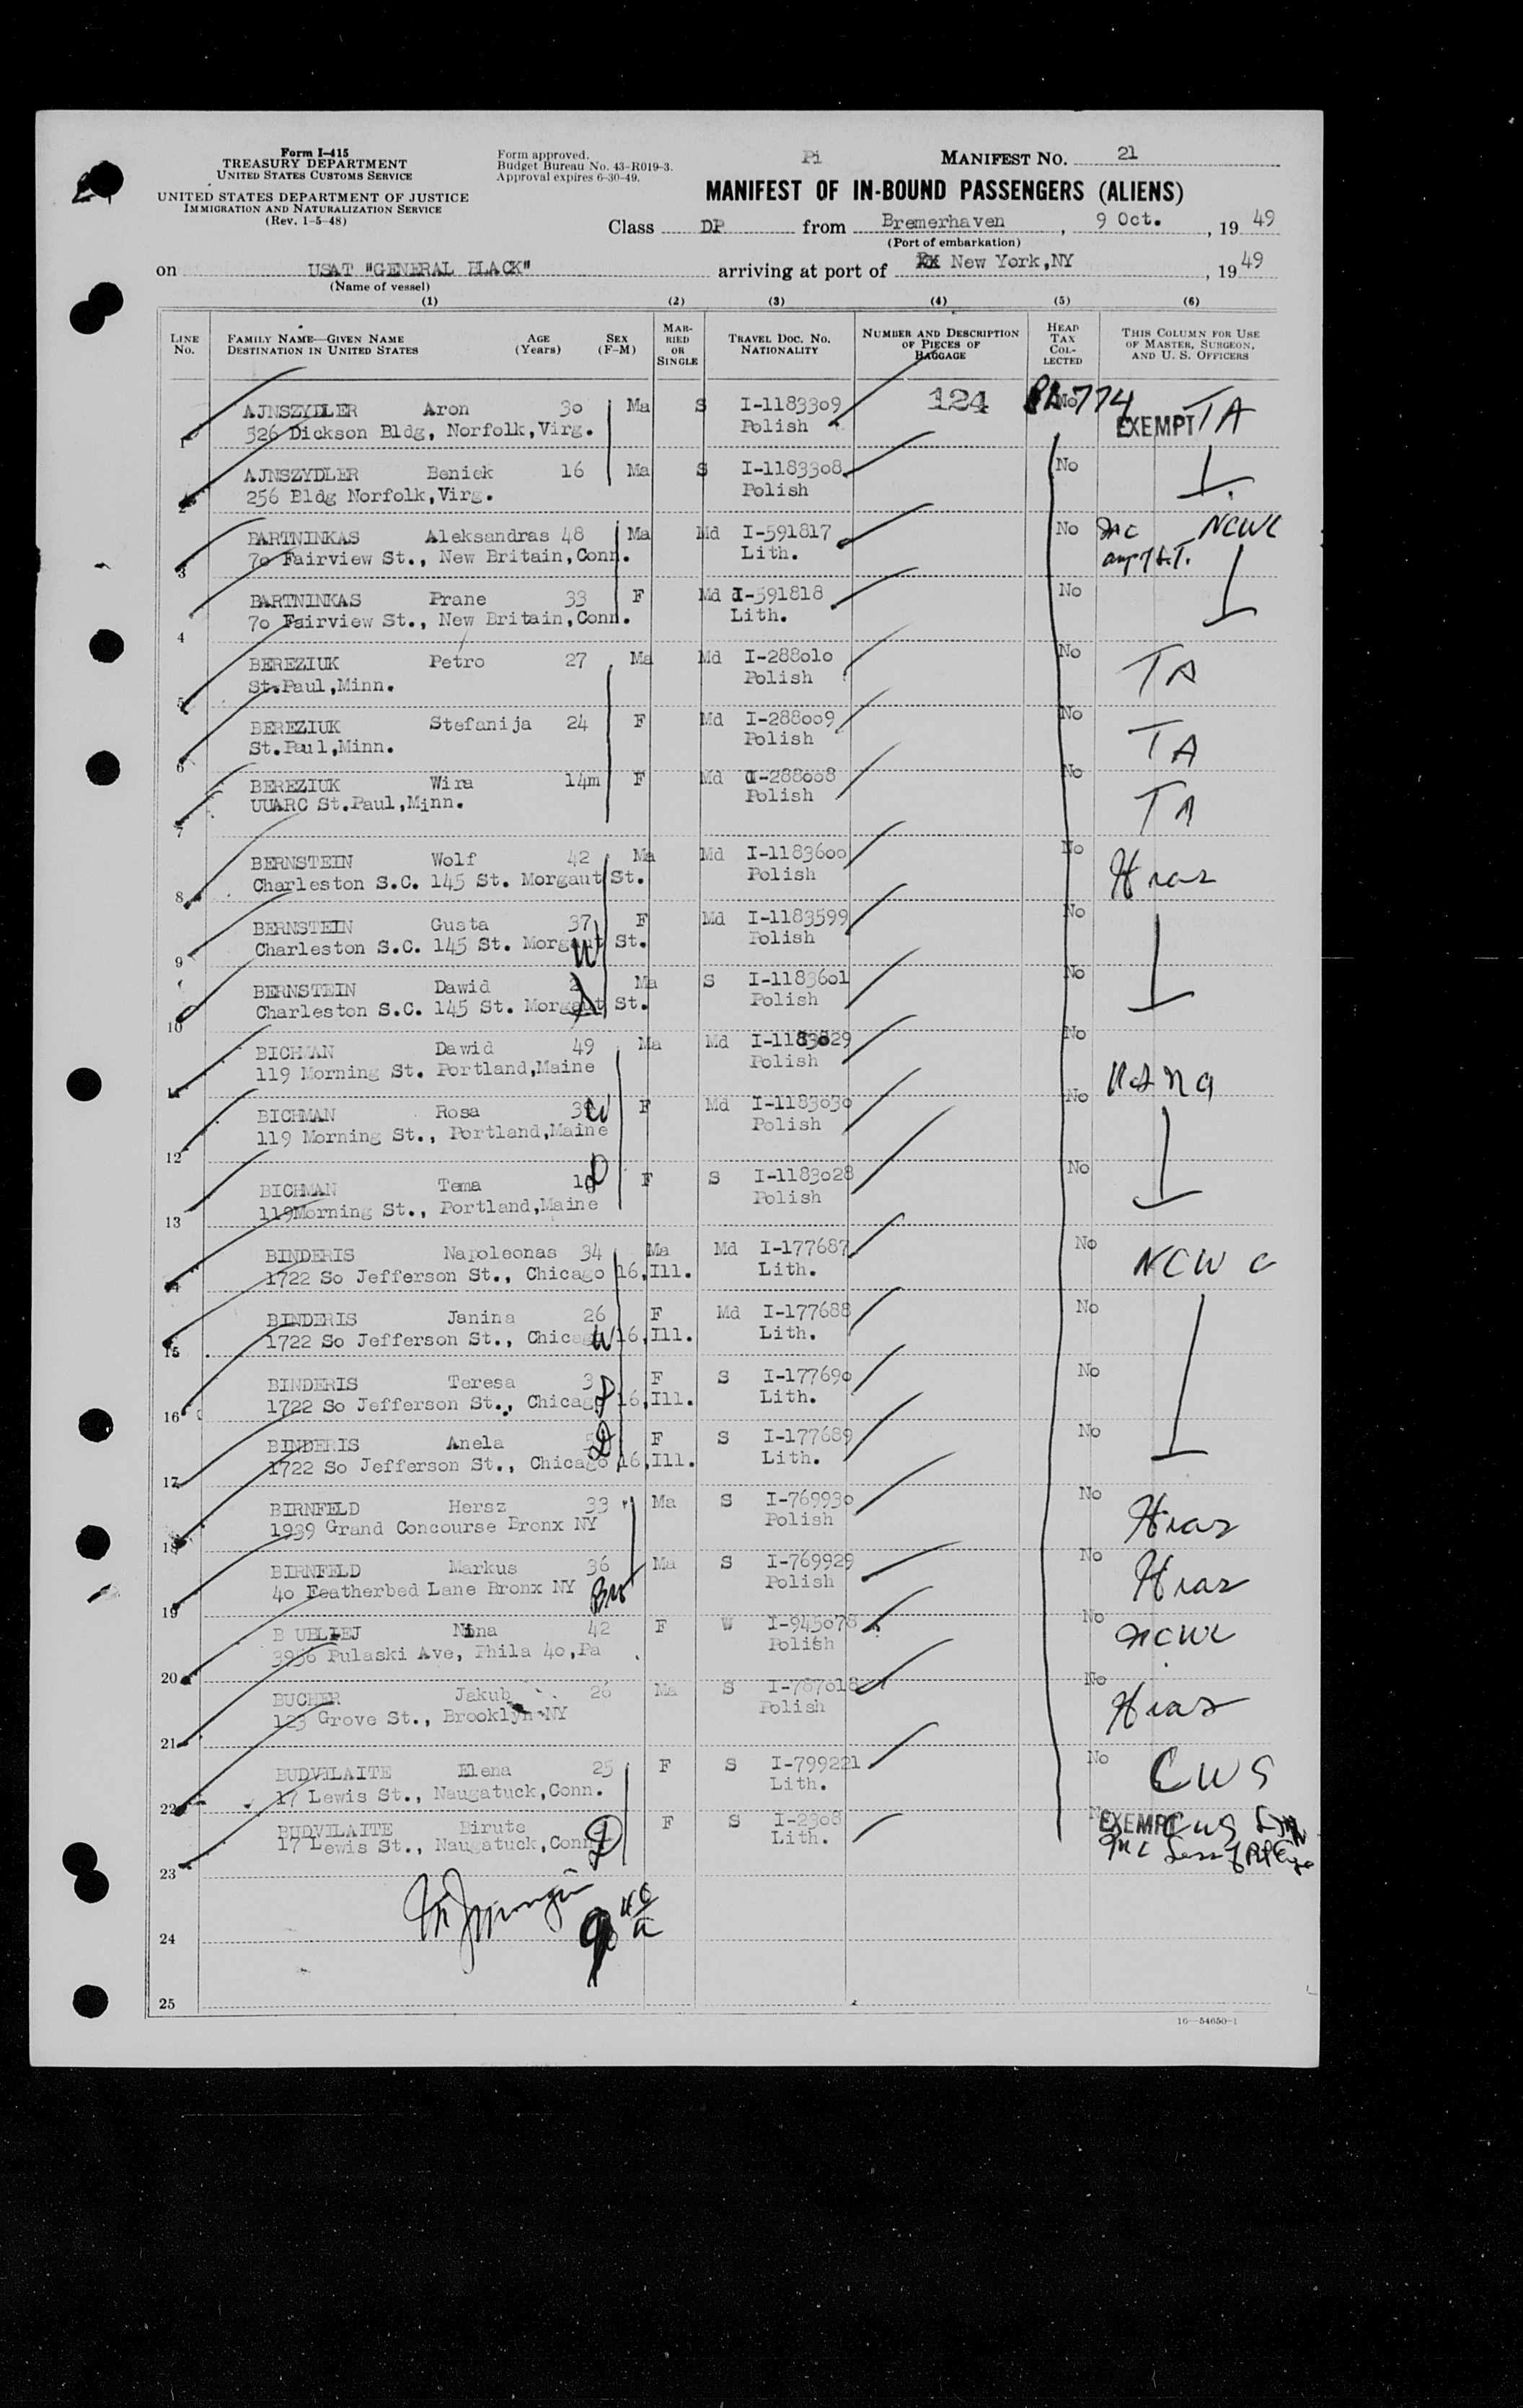 Form I-415
TREASURY DEPARTMENT
UNITED STATES CUSTOMS SERVICE
UNITED STATES DEPARTMENT OF JUSTICE
IMMIGRATION AND NATURALIZATION SERVICE
(Rev. 1-5-48)
Form approved.
Budget Bureau No. 43-R019-3.
Approval expires 6-30-49.
Pi
MANIFEST NO. 21
MANIFEST OF IN-BOUND PASSENGERS (ALIENS)
Class DP from Bremerhaven, 9 Oct., 1949
(Port of embarkation)
on USAT "GENERAL BLACK" arriving at port of New York,NY, 1949
(Name of vessel)
(1) (2) (3) (4) (5) (6)
LINE No. FAMILY NAME—GIVEN NAME DESTINATION IN UNITED STATES AGE (Years) SEX (F-M) MARRIED OR SINGLE TRAVEL DOC. NO. NATIONALITY NUMBER AND DESCRIPTION OF PIECES OF BAGGAGE HEAD TAX COLLECTED THIS COLUMN FOR USE OF MASTER, SURGEON, AND U. S. OFFICERS
AJNSZYDLER Aron 30 Ma S I-1183309 124 No 774 EXEMPT TA
1 526 Dickson Bldg, Norfolk,Virg. Polish
AJNSZYDLER Beniek 16 Ma S I-1183308 No
2 256 Bldg Norfolk,Virg. Polish
BARTNINKAS Aleksandras 48 Ma Md I-591817 No mc NCWC
3 70 Fairview St., New Britain,Conn. Lith.
BARTNINKAS Prane 33 F Md I-591818 No
4 70 Fairview St., New Britain,Conn. Lith.
BEREZIUK Petro 27 Ma Md I-288010 No TA
5 St.Paul,Minn. Polish
BEREZIUK Stefanija 24 F Md I-288009 No TA
6 St.Paul,Minn. Polish
BEREZIUK Wira 14m F Md I-288008 No TA
7 UUARC St.Paul,Minn. Polish
BERNSTEIN Wolf 42 Ma Md I-1183600 No Hias
8 Charleston S.C. 145 St. Morgaut St. Polish
BERNSTEIN Gusta 37 F Md I-1183599 No
9 Charleston S.C. 145 St. Morgaut St. W Polish
BERNSTEIN Dawid 2 Ma S I-1183601 No
10 Charleston S.C. 145 St. Morgaut St. Polish
BICHMAN Dawid 49 Ma Md I-1183029 No
11 119 Morning St. Portland,Maine Polish
BICHMAN Rosa W F Md I-1183030 No
12 119 Morning St., Portland,Maine Polish
BICHMAN Tema D F S I-1183028 No
13 119Morning St., Portland,Maine Polish
BINDERIS Napoleonas 34 Ma Md I-177687 No NCWC
14 1722 So Jefferson St., Chicago 16,Ill. Lith.
BINDERIS Janina 26 F Md I-177688 No
15 1722 So Jefferson St., Chicago W 16,Ill. Lith.
BINDERIS Teresa 3 F S I-177690 No
16 1722 So Jefferson St., Chicago D 16,Ill. Lith.
BINDERIS Anela D F S I-177689 No
17 1722 So Jefferson St., Chicago 16,Ill. Lith.
BIRNFELD Hersz 33 Ma S I-769930 No Hias
18 1939 Grand Concourse Bronx NY Polish
BIRNFELD Markus 36 Ma S I-769929 No Hias
19 40 Featherbed Lane Bronx NY Bro Polish
B UBLIEJ Nina 42 F W I-945078 No NCWC
20 3956 Pulaski Ave, Phila 40,Pa Polish
BUCHER Jakub 26 Ma S I-787018 No Hias
21 123 Grove St., Brooklyn NY Polish
BUDVILAITE Elena 25 F S I-799221 No CWS
22 17 Lewis St., Naugatuck,Conn. Lith.
BUDVILAITE Birute F S I-2308 No EXEMPT CWS
23 17 Lewis St., Naugatuck,Conn. D Lith. mc
24
25
16—54650-1